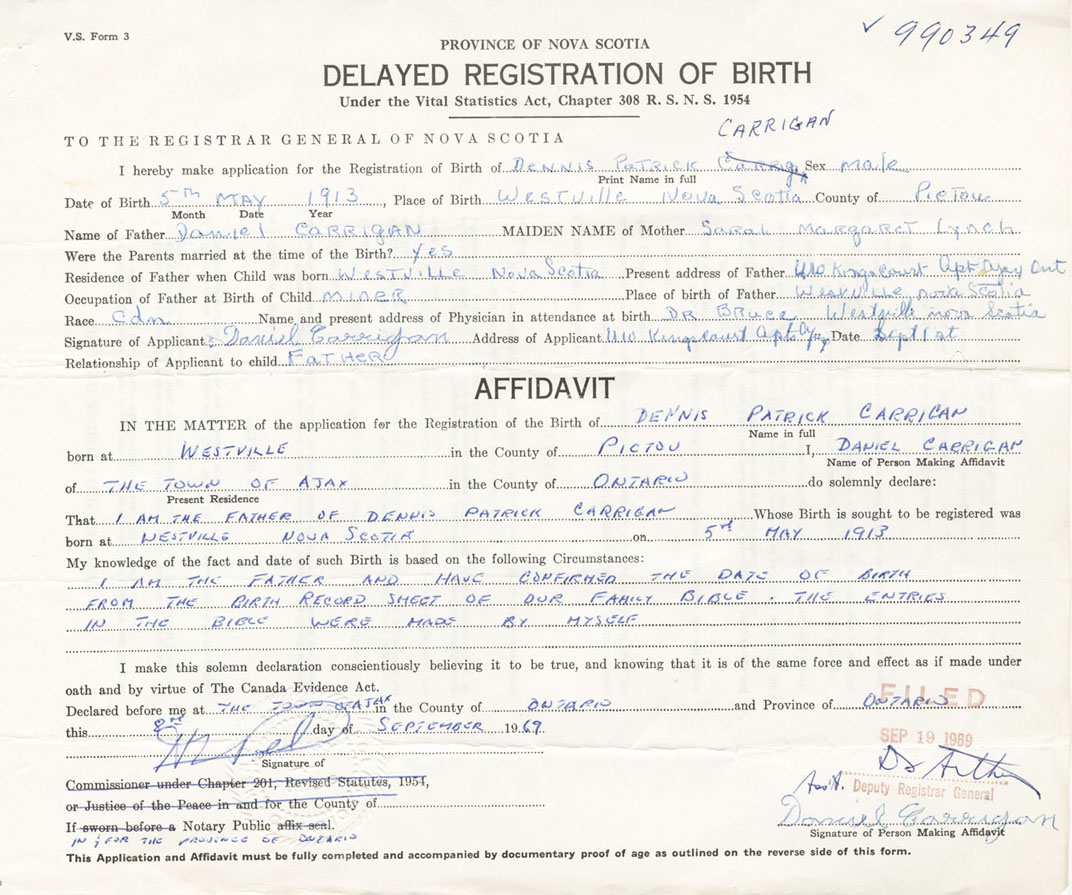 V.S. Form 3
✓ 990349
PROVINCE OF NOVA SCOTIA
DELAYED REGISTRATION OF BIRTH
Under the Vital Statistics Act, Chapter 308 R. S. N. S. 1954
CARRIGAN
TO THE REGISTRAR GENERAL OF NOVA SCOTIA
I hereby make application for the Registration of Birth of DENNIS PATRICK Sex Male
Print Name in full
Date of Birth 5TH MAY 1913, Place of Birth WESTVILLE NOVA SCOTIA County of PICTOU
Month Date Year
Name of Father Daniel CARRIGAN MAIDEN NAME of Mother SARAH MARGARET LYNCH
Were the Parents married at the time of the Birth? Yes
Residence of Father when Child was born WESTVILLE NOVA SCOTIA Present address of Father Kingscourt Apt Ajax Ont
Occupation of Father at Birth of Child MINER Place of birth of Father Westville nova Scotia
Race Cdn Name and present address of Physician in attendance at birth DR BRUCE Westville nova Scotia
Signature of Applicant Daniel Carrigan Address of Applicant Kingscourt Apt Date Sept 1st
Relationship of Applicant to child FATHER
AFFIDAVIT
IN THE MATTER of the application for the Registration of the Birth of DENNIS PATRICK CARRIGAN
Name in full
born at WESTVILLE in the County of PICTOU I, DANIEL CARRIGAN
Name of Person Making Affidavit
of THE TOWN OF AJAX in the County of ONTARIO do solemnly declare:
Present Residence
That I AM THE FATHER OF DENNIS PATRICK CARRIGAN Whose Birth is sought to be registered was
born at WESTVILLE NOVA SCOTIA on 5TH MAY 1913
My knowledge of the fact and date of such Birth is based on the following Circumstances:
I AM THE FATHER AND HAVE CONFIRMED THE DATE OF BIRTH
FROM THE BIRTH RECORD SHEET OF OUR FAMILY BIBLE. THE ENTRIES
IN THE BIBLE WERE MADE BY MYSELF
I make this solemn declaration conscientiously believing it to be true, and knowing that it is of the same force and effect as if made under
oath and by virtue of The Canada Evidence Act.
Declared before me at THE TOWN OF AJAX in the County of ONTARIO and Province of ONTARIO
FILED
this 8TH day of SEPTEMBER 1969
SEP 19 1969
Signature of
Commissioner under Chapter 201, Revised Statutes, 1954,
Asst. Deputy Registrar General
or Justice of the Peace in and for the County of
Daniel Carrigan
If sworn before a Notary Public affix seal.
Signature of Person Making Affidavit
IN & FOR THE PROVINCE OF ONTARIO
This Application and Affidavit must be fully completed and accompanied by documentary proof of age as outlined on the reverse side of this form.